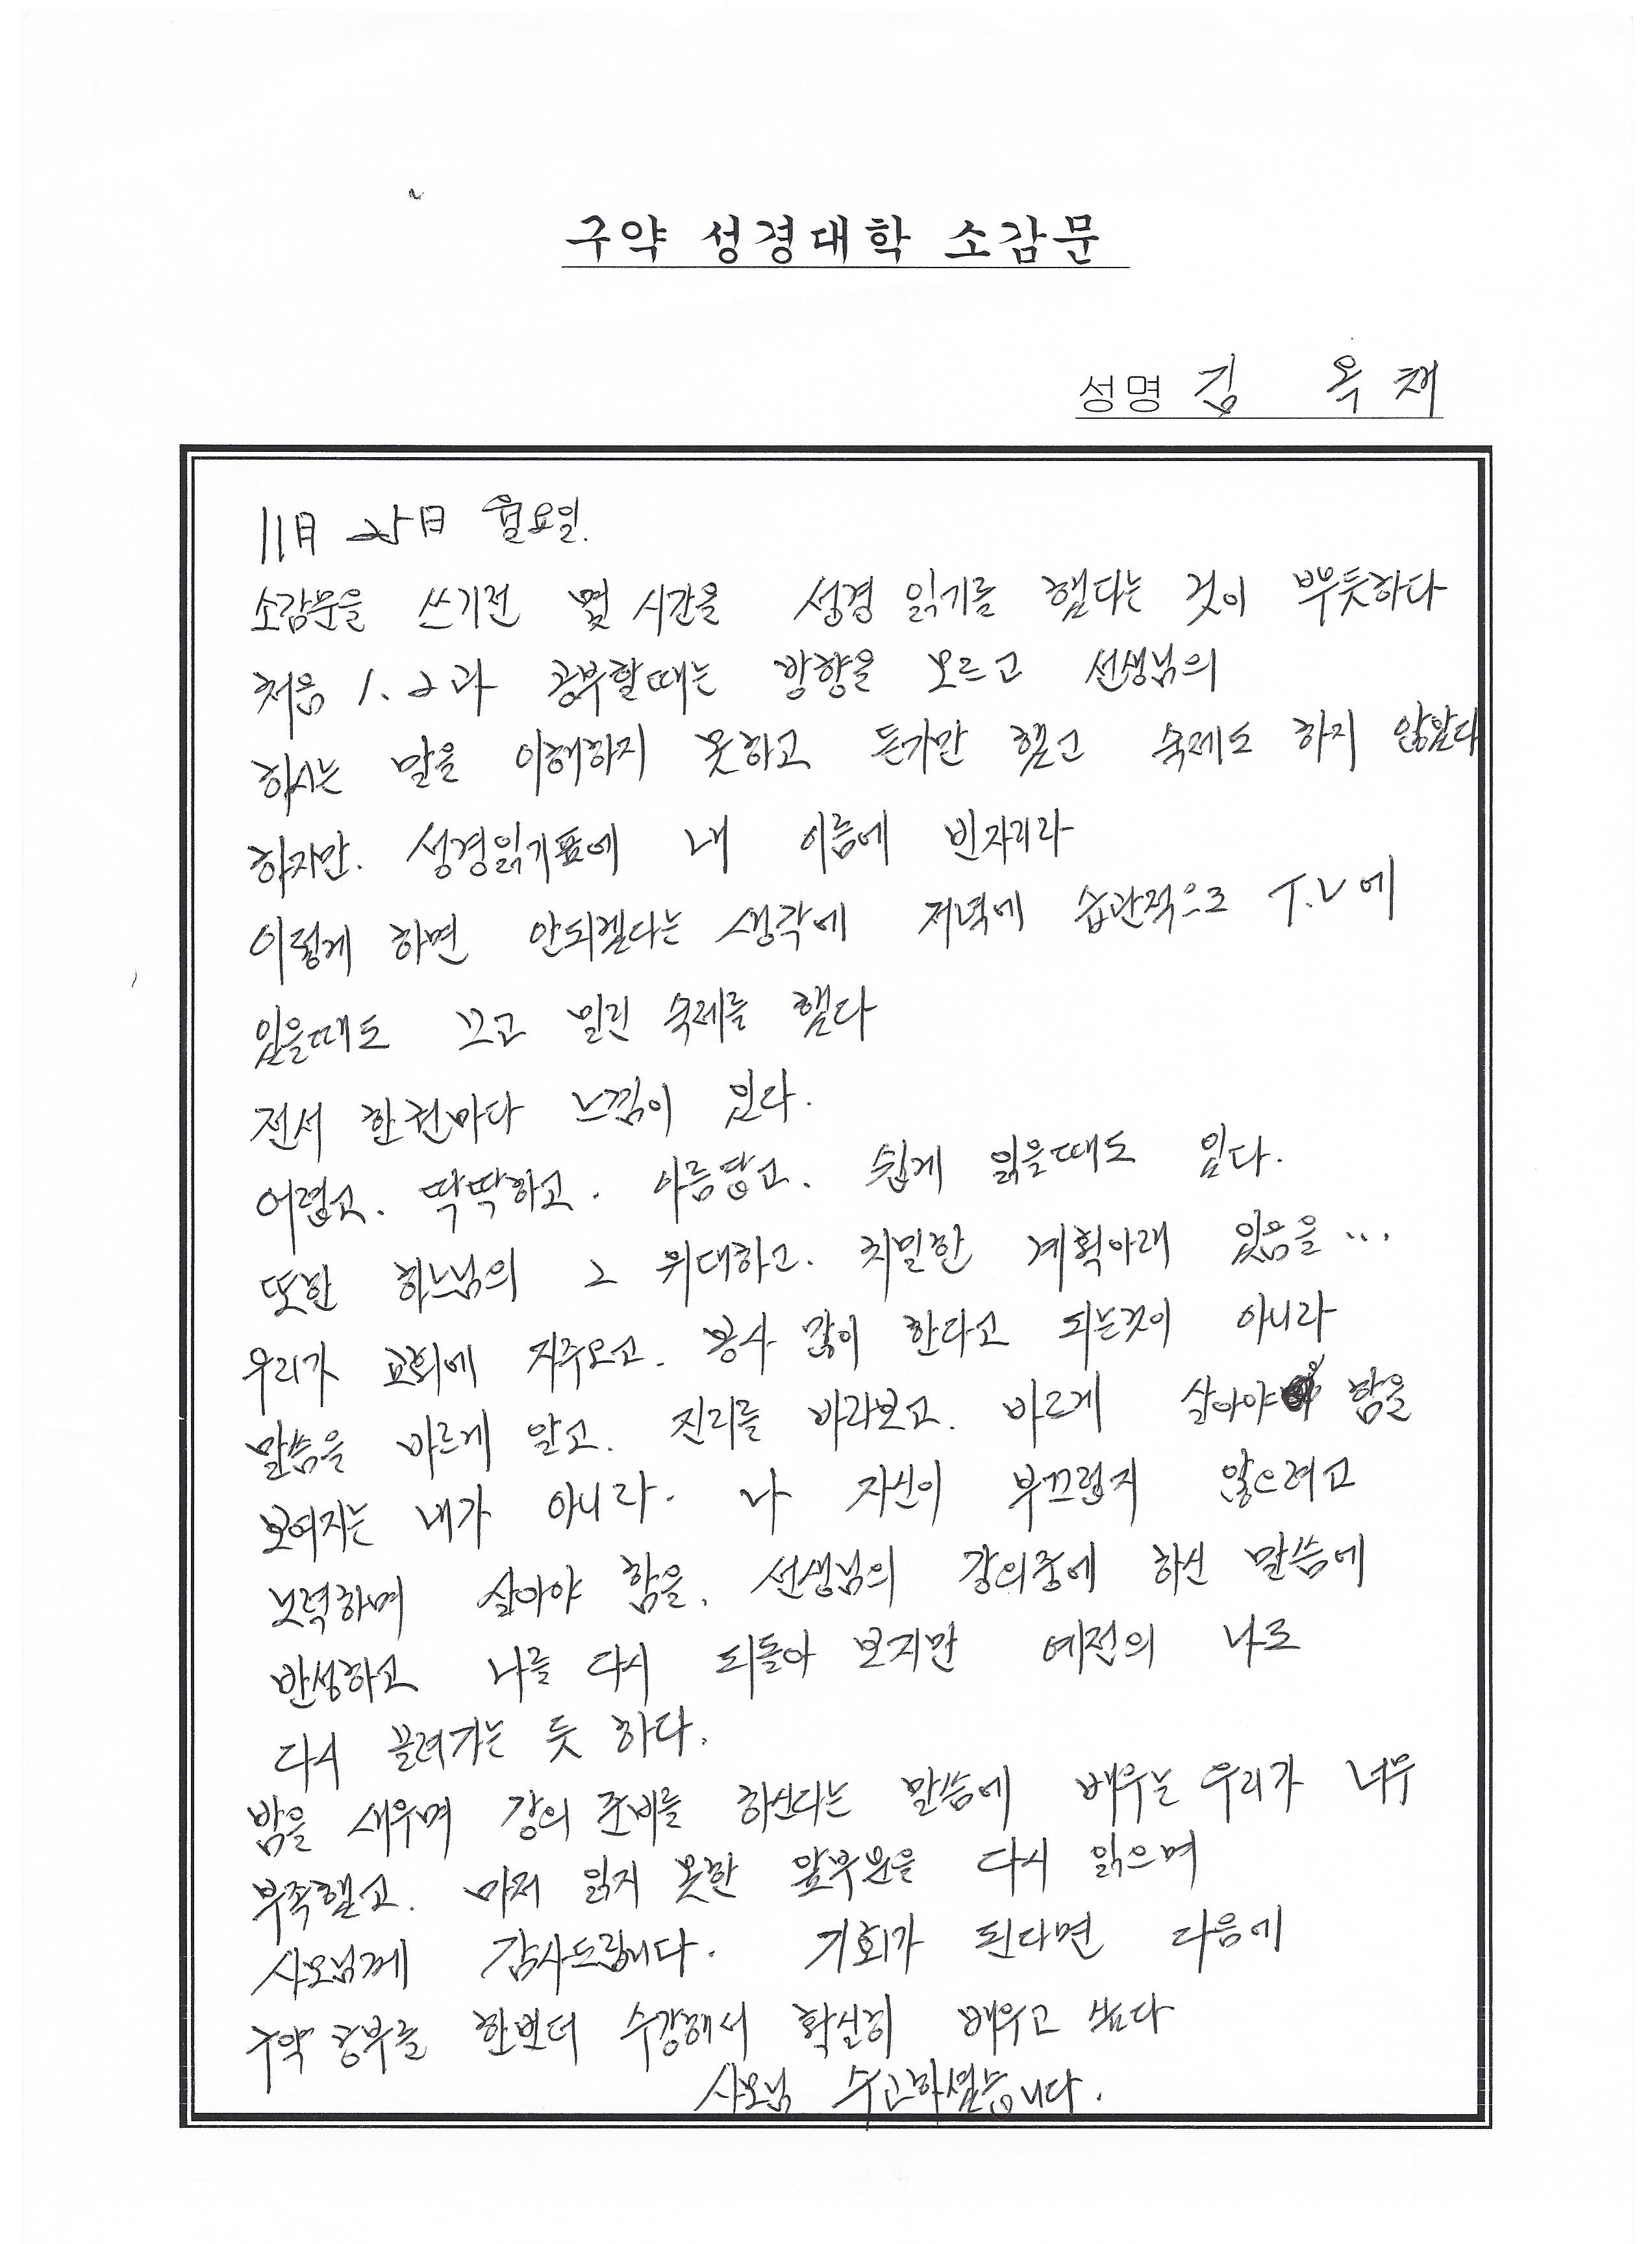 구약 성경대학 소감문
성명 김 옥 채
11日 25日 월요일.
소감문을 쓰기전 몇 시간을 성경 읽기를 했다는 것이 뿌듯하다
처음 1.2과 공부할때는 방향을 모르고 선생님의
하시는 말을 이해하지 못하고 듣기만 했고 숙제도 하지 않았다
하지만. 성경읽기표에 내 이름에 빈자리라
이렇게 하면 안되겠다는 생각에 저녁에 습관적으로 T.V에
있을때도 끄고 밀린 숙제를 했다
전서 한권마다 느낌이 있다.
어렵고. 딱딱하고. 아름답고. 쉽게 읽을때도 있다.
또한 하느님의 그 위대하고. 치밀한 계획아래 있음을...
우리가 교회에 자주오고. 봉사 많이 한다고 되는것이 아니라
말씀을 바르게 알고. 진리를 바라보고. 바르게 살아야 함을
보여지는 내가 아니라. 나 자신이 부끄럽지 않으려고
노력하며 살아야 함을. 선생님의 강의중에 하신 말씀에
반성하고 나를 다시 되돌아 보지만 예전의 나로
다시 끌려가는 듯 하다.
밤을 새우며 강의 준비를 하신다는 말씀에 배우는 우리가 너무
부족했고. 마저 읽지 못한 앞부분을 다시 읽으며
사모님께 감사드립니다. 기회가 된다면 다음에
구약 공부를 한번더 수강해서 확실히 배우고 싶다
사모님 수고하셨습니다.